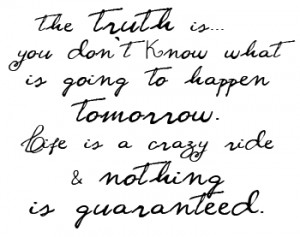 the truth is...
you don't know what
is going to happen
tomorrow.
Life is a crazy ride
& nothing
is guaranteed.